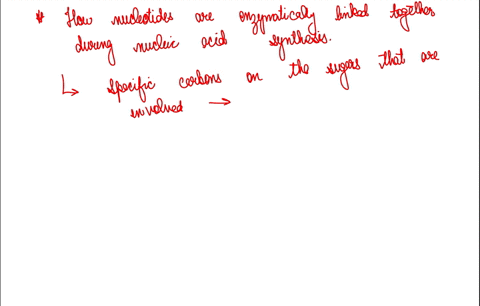 * How nucleotides are enzymatically linked together
during nucleic acid synthesis.
↳ specific carbons on the sugars that are
involved →